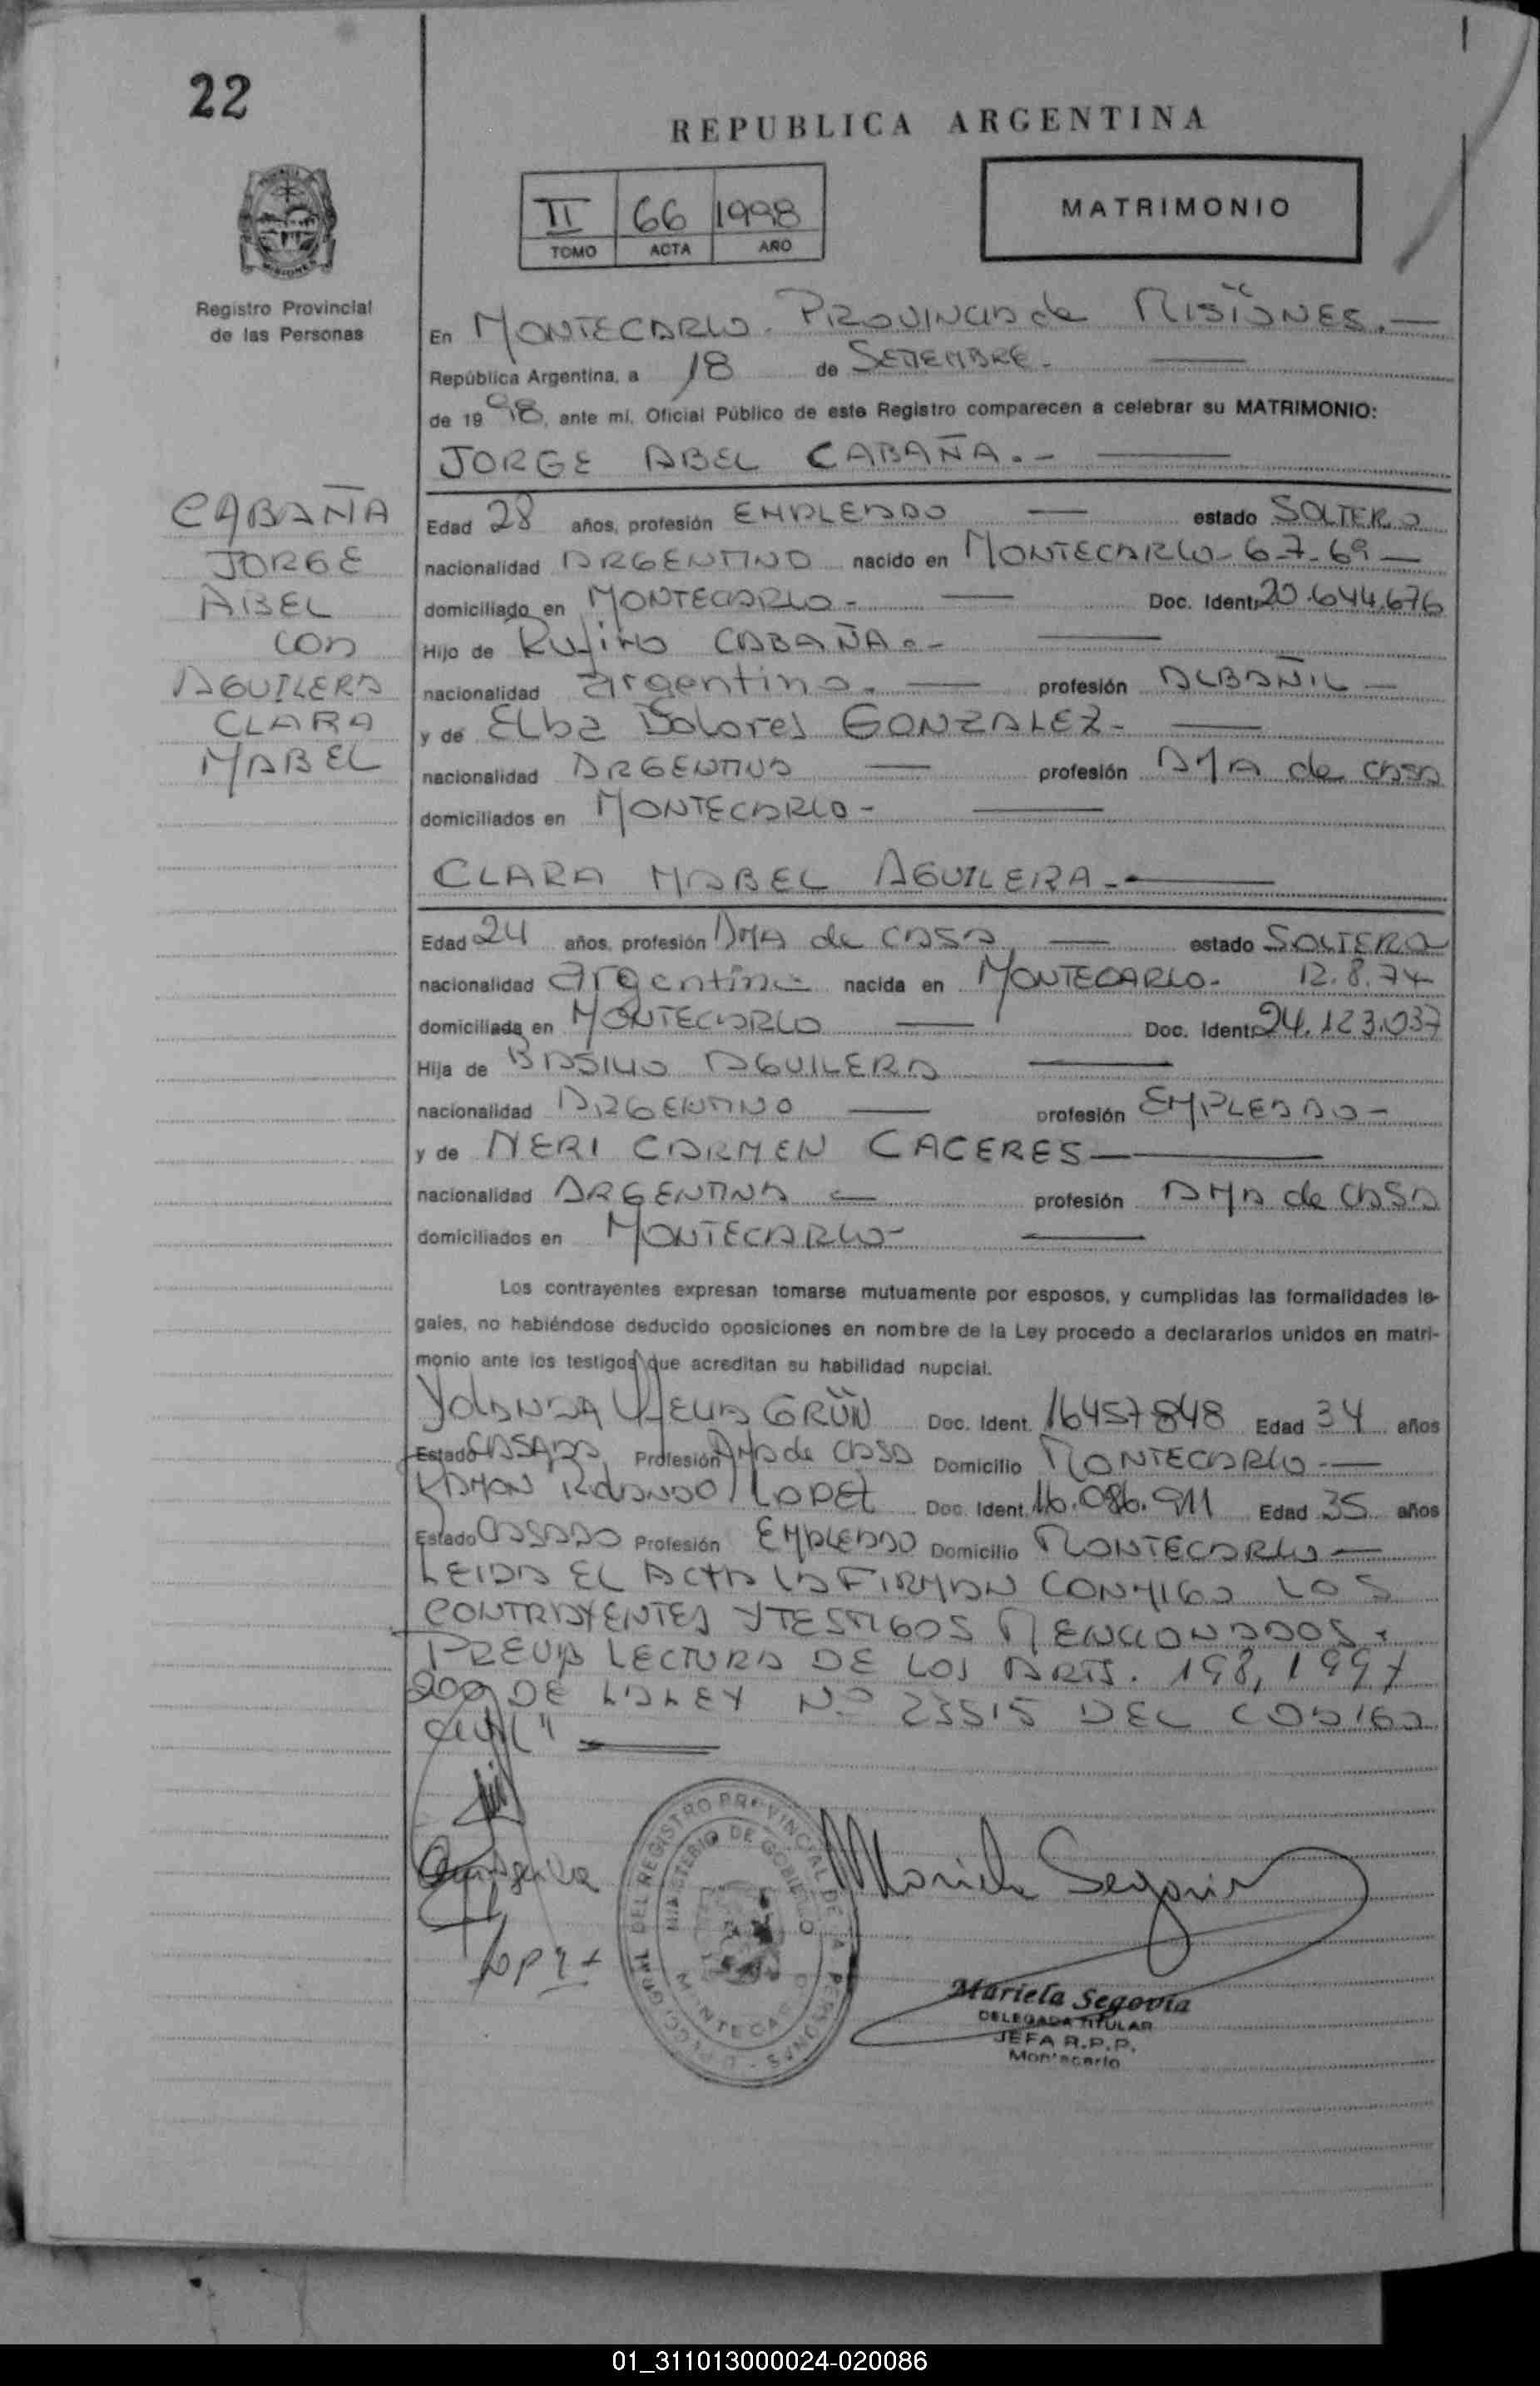 22
REPUBLICA ARGENTINA
II 66 1998
TOMO ACTA AÑO
MATRIMONIO
Registro Provincial
de las Personas
En MONTECARLO. PROVINCIA de MISIONES.—
República Argentina, a 18 de SETIEMBRE.
de 1998, ante mí, Oficial Público de este Registro comparecen a celebrar su MATRIMONIO:
JORGE ABEL CABAÑA.-
CABAÑA
JORGE
ABEL
CON
AGUILERA
CLARA
MABEL
Edad 28 años, profesión EMPLEADO — estado SOLTERO
nacionalidad ARGENTINO nacido en MONTECARLO- 6-7-69 —
domiciliado en MONTECARLO- — Doc. Ident. 20.644.676
Hijo de Rufino CABAÑA.-
nacionalidad argentino. — profesión ALBAÑIL —
y de Elba Dolores GONZALEZ-
nacionalidad ARGENTINA — profesión AMA de CASA
domiciliados en MONTECARLO-
CLARA MABEL AGUILERA-
Edad 24 años, profesión AMA de CASA — estado SOLTERA
nacionalidad argentina nacida en MONTECARLO- 12.8.74
domiciliada en MONTECARLO — Doc. Ident. 24.123.037
Hija de BASILIO AGUILERA
nacionalidad ARGENTINO — profesión EMPLEADO-
y de NERI CARMEN CACERES—
nacionalidad ARGENTINA — profesión AMA de CASA
domiciliados en MONTECARLO-
Los contrayentes expresan tomarse mutuamente por esposos, y cumplidas las formalidades le-
gales, no habiéndose deducido oposiciones en nombre de la Ley procedo a declararlos unidos en matri-
monio ante los testigos que acreditan su habilidad nupcial.
YOLANDA GRÜN Doc. Ident. 16457848 Edad 34 años
Estado CASADA Profesión AMA de CASA Domicilio MONTECARLO-
RAMON ROLANDO LOPEZ Doc. Ident. 16.086.911 Edad 35 años
Estado CASADO Profesión EMPLEADO Domicilio MONTECARLO—
LEIDA EL ACTA LA FIRMAN CONMIGO LOS
CONTRAYENTES Y TESTIGOS MENCIONADOS.
PREVIA LECTURA DE LOS ARTS. 198, 199 Y
200 DE LA LEY Nº 23515 DEL CODIGO
CIVIL"
DEL REGISTRO PROVINCIAL DE LA PERSONAS
MINISTERIO DE GOBIERNO
MONTECARLO
Mariela Segovia
Mariela Segovia
DELEGADA TITULAR
JEFA R.P.P.
Montecarlo
01_311013000024-020086